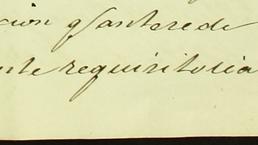 cion q.e antecede
nte requisitoria